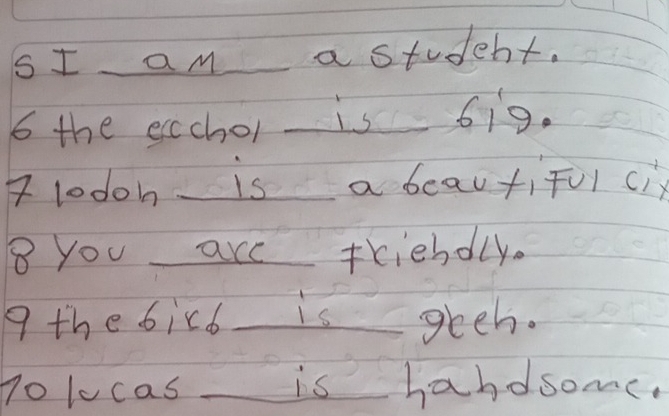 5 I am a student.
6 the ecchol is big.
7 lodon is a beautiful cit
8 You are friendly.
9 the birb is green.
10 lucas is handsome.